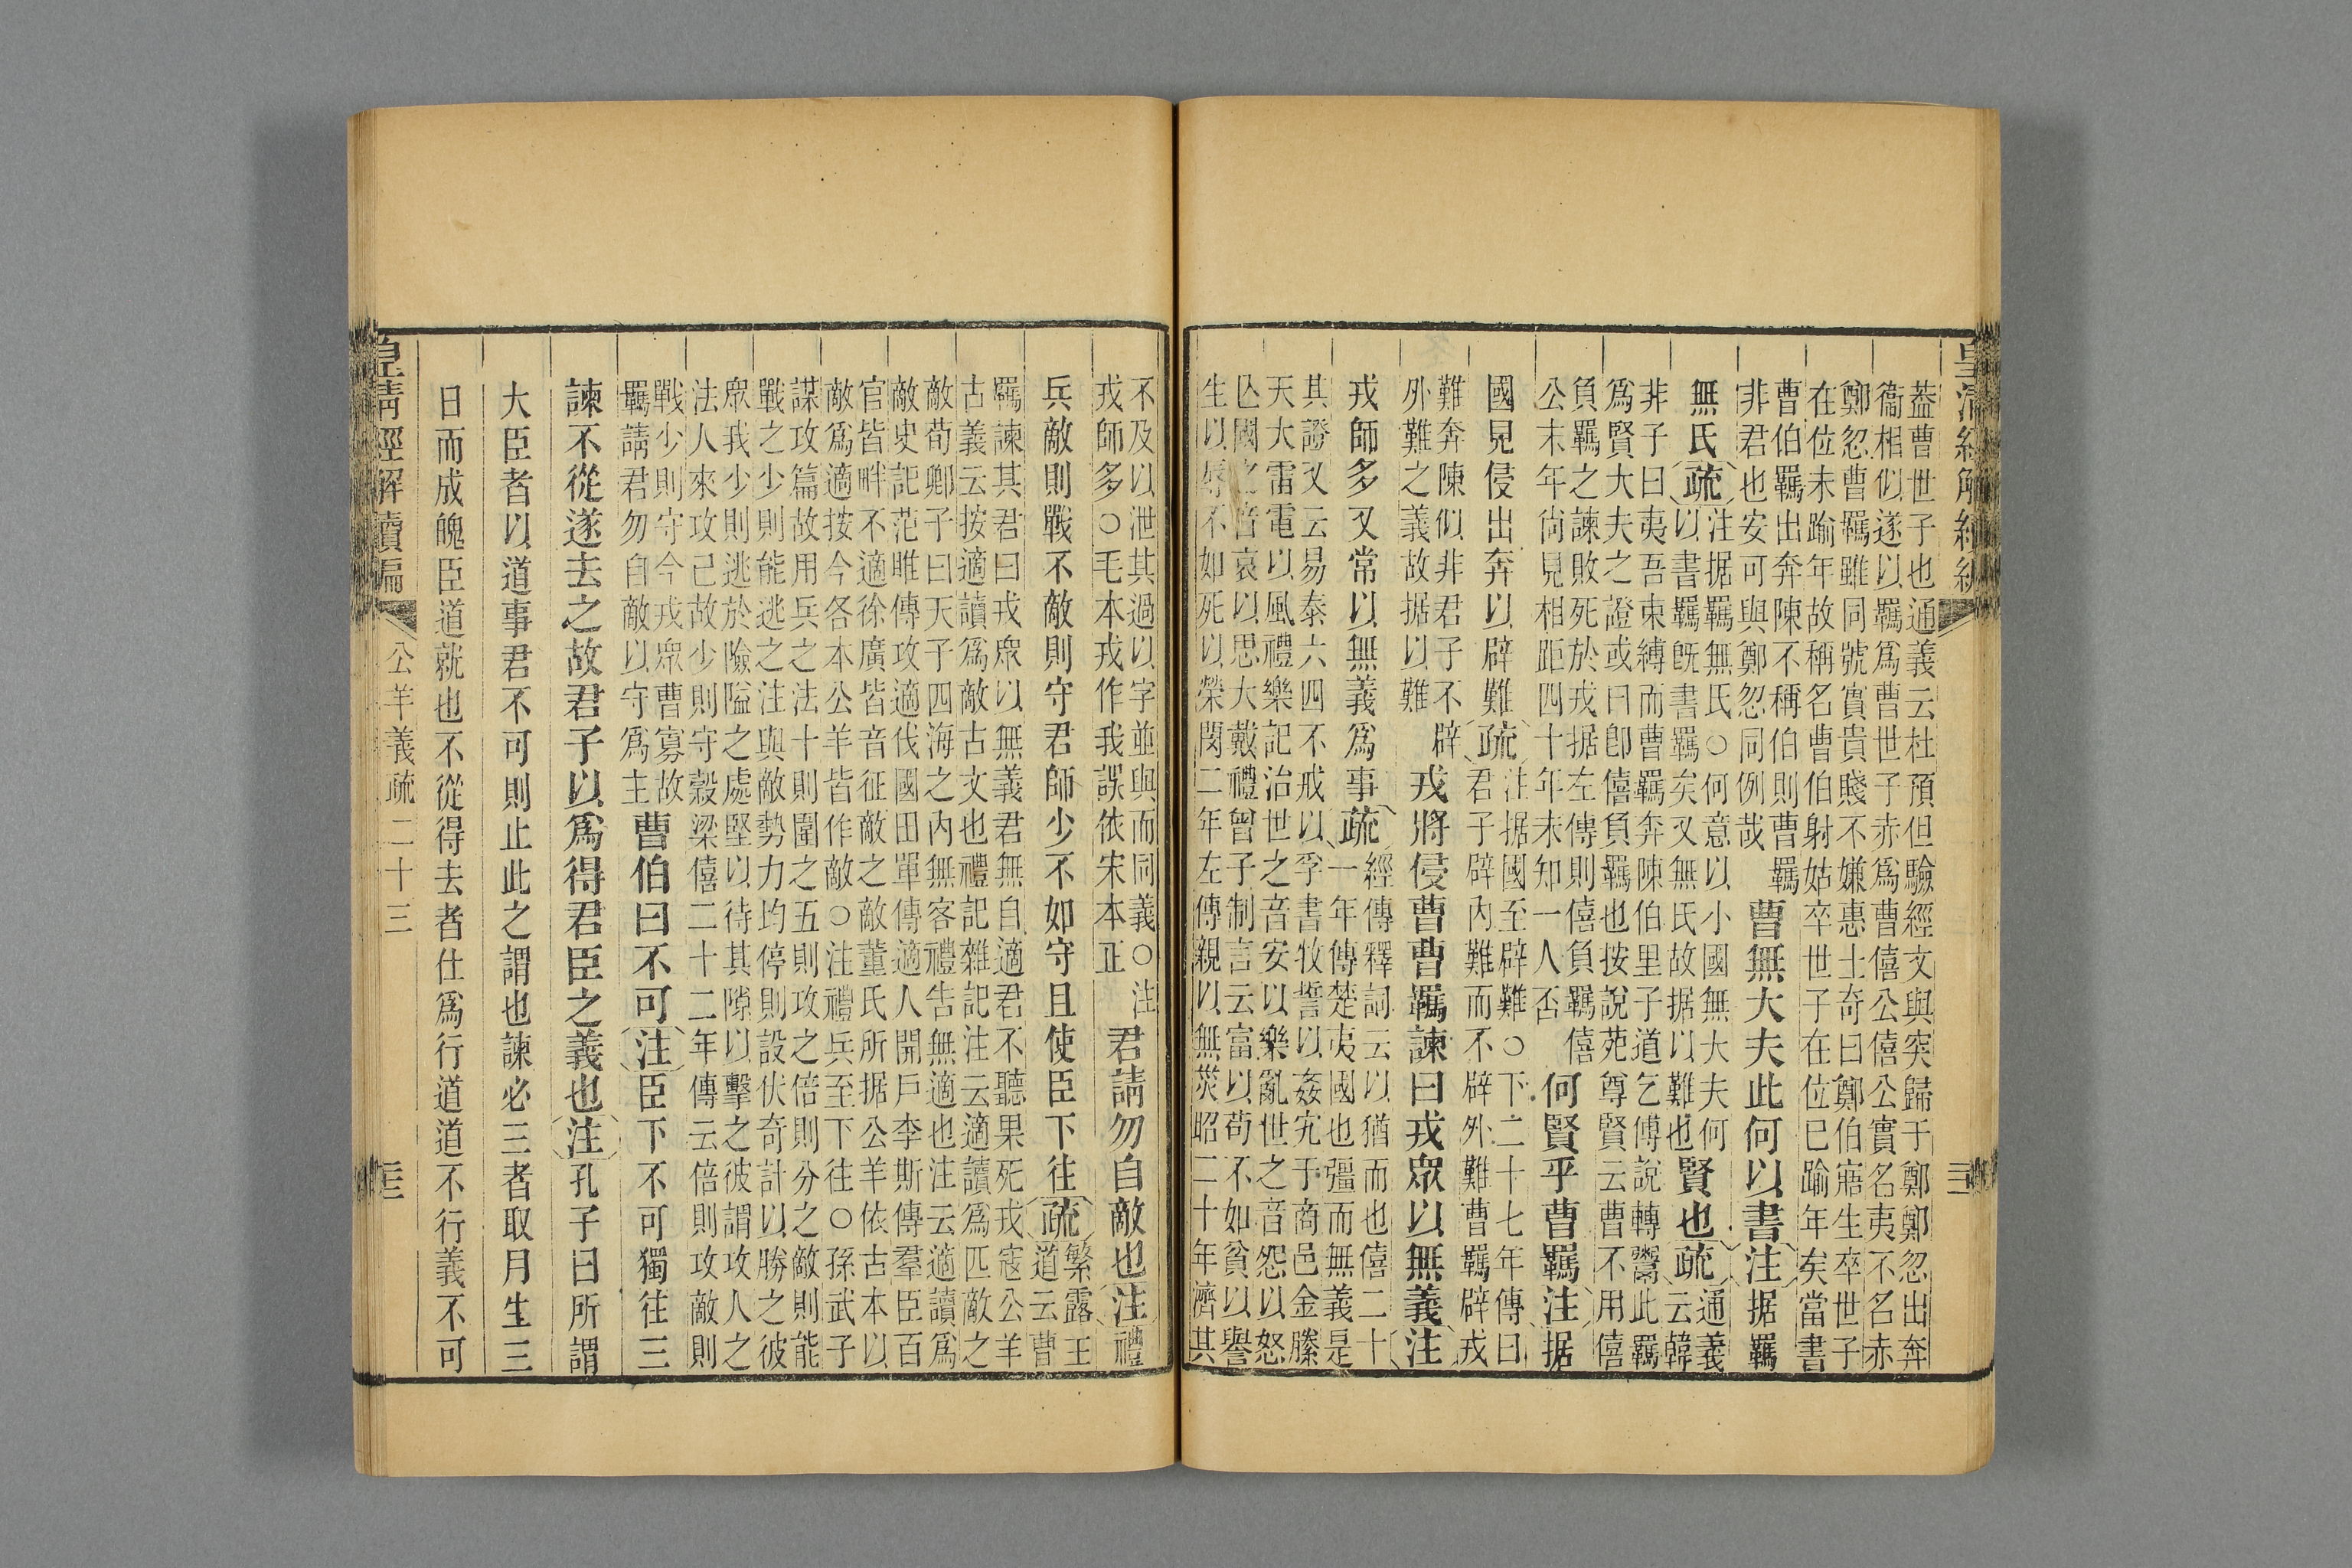 蓋曹世子也通義云杜預但驗經文與突歸于鄭鄭忽出奔
衞相似遂以羈爲曹世子赤爲曹僖公僖公實名夷不名赤
鄭忽曹羈雖同號實貴賤不嫌惠士奇曰鄭伯寤生卒世子
在位未踰年故稱名曹伯射姑卒世子在位已踰年矣當書
曹伯羈出奔陳不稱伯則曹羈
非君也安可與鄭忽同例哉
曹無大夫此何以書注据羈
無氏疏
注据羈無氏○何意以小國無大夫何
以書羈旣書羈矣又無氏故据以難也
賢也疏
通義
云韓
非子曰夷吾束縛而曹羈奔陳伯里子道乞傅說轉鬻此羈
爲賢大夫之證或曰卽僖負羈也按說苑尊賢云曹不用僖
負羈之諫敗死於戎据左傳則僖負羈僖
公末年尙見相距四十年未知一人否
何賢乎曹羈注据
國見侵出奔以辟難疏
注据國至辟難○下二十七年傳曰
君子辟內難而不辟外難曹羈辟戎
難奔陳似非君子不辟
外難之義故据以難
戎將侵曹曹羈諫曰戎眾以無義注
戎師多又常以無義爲事疏
經傳釋詞云以猶而也僖二十
一年傳楚夷國也彊而無義是
其證又云易泰六四不戒以孚書牧誓以姦宄于商邑金縢
天大雷電以風禮樂記治世之音安以樂亂世之音怨以怒
亾國之音哀以思大戴禮曾子制言云富以苟不如貧以譽
生以辱不如死以榮閔二年左傳親以無災昭二十年濟其
不及以泄其過以字並與而同義○注
戎師多○毛本戎作我誤依宋本正
君請勿自敵也注禮
兵敵則戰不敵則守君師少不如守且使臣下往疏
繁露王
道云曹
羈諫其君曰戎眾以無義君無自適君不聽果死戎寇公羊
古義云按適讀爲敵古文也禮記雜記注云適讀爲匹敵之
敵荀卿子曰天子四海之內無客禮告無適也注云適讀爲
敵史記范睢傳攻適伐國田單傳適人開戶李斯傳羣臣百
官皆畔不適徐廣皆音征敵之敵董氏所据公羊依古本以
敵爲適按今各本公羊皆作敵○注禮兵至下往○孫武子
謀攻篇故用兵之法十則圍之五則攻之倍則分之敵則能
戰之少則能逃之注與敵勢力均停則設伏奇計以勝之彼
眾我少則逃於險隘之處堅以待其隙以擊之彼謂攻人之
法人來攻己故少則守穀梁僖二十二年傳云倍則攻敵則
戰少則守今戎眾曹寡故
羈請君勿自敵以守爲主
曹伯曰不可注臣下不可獨往三
諫不從遂去之故君子以爲得君臣之義也注孔子曰所謂
大臣者以道事君不可則止此之謂也諫必三者取月生三
日而成魄臣道就也不從得去者仕爲行道道不行義不可
皇清經解續編
公羊義疏二十三